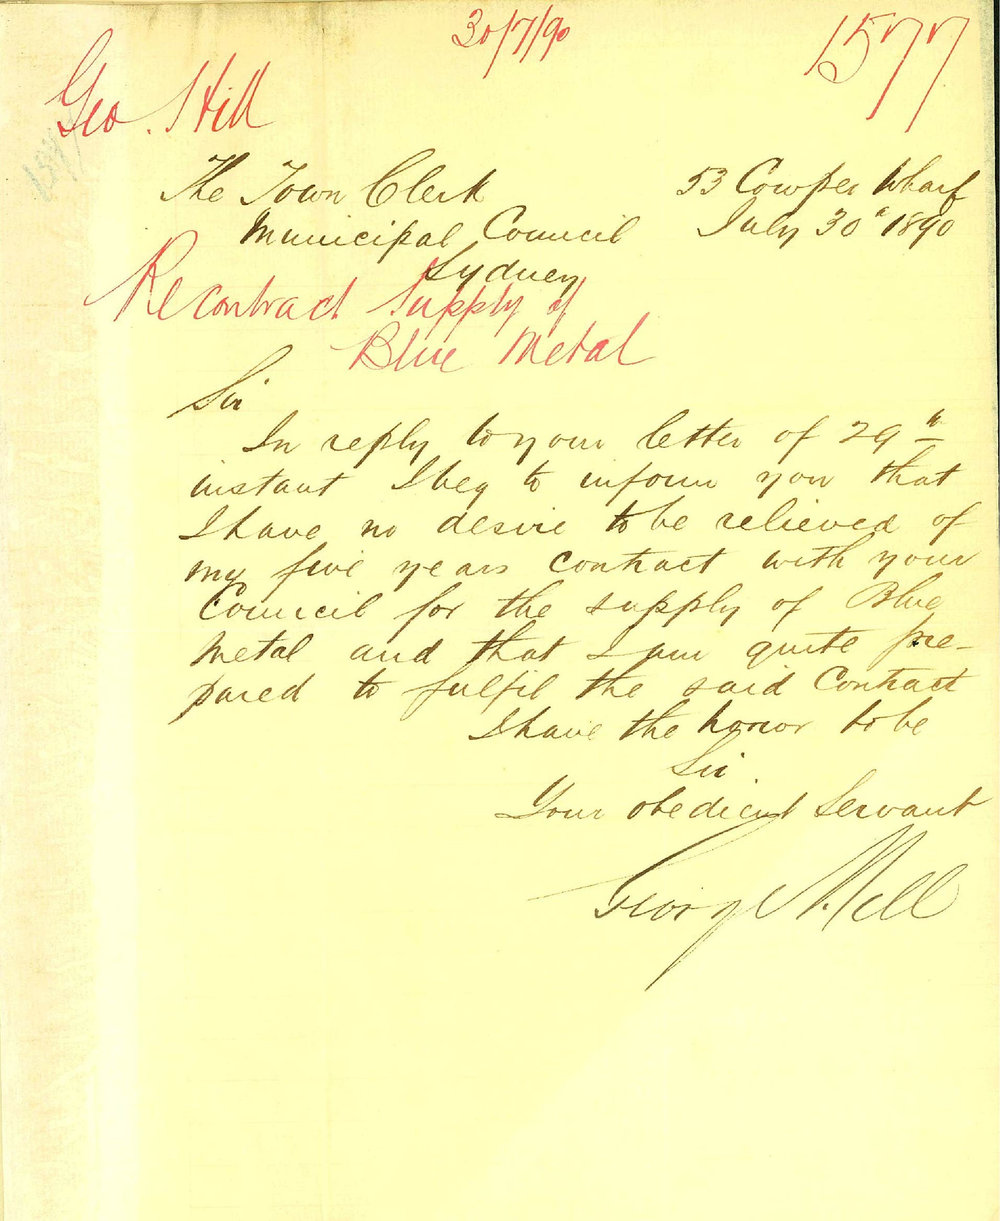 30/7/90
1577
Geo. Hill
The Town Clerk
Municipal Council
Sydney
53 Cowper Wharf
July 30th 1890
Re contract supply of
Blue Metal
Sir
In reply to your letter of 29th
instant I beg to inform you that
I have no desire to be relieved of
my five years contract with your
Council for the supply of Blue
Metal and that I am quite pre-
pared to fulfil the said Contract
I have the honor to be
Sir
Your obedient Servant
George Hill